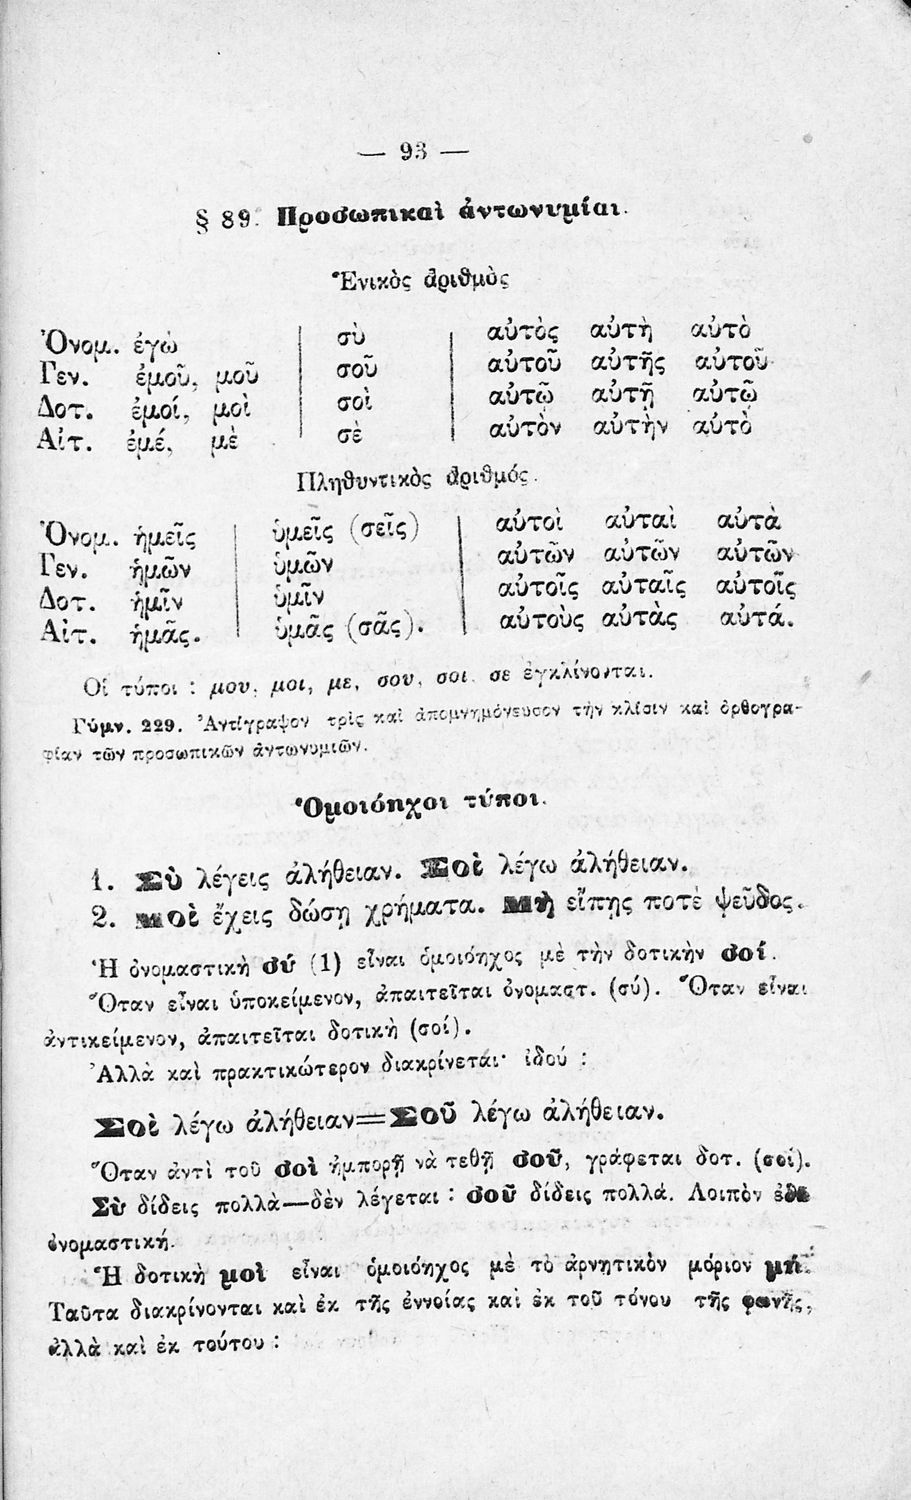 — 93 —
§ 89. Προσωπικαὶ ἀντωνυμίαι.
Ἑνικὸς ἀριθμὸς
Ὀνομ. ἐγὼ σὺ αὐτὸς αὐτὴ αὐτὸ
Γεν. ἐμοῦ, μοῦ σοῦ αὐτοῦ αὐτῆς αὐτοῦ
Δοτ. ἐμοί, μοὶ σοὶ αὐτῷ αὐτῇ αὐτῷ
Αἰτ. ἐμέ, μὲ σὲ αὐτὸν αὐτὴν αὐτὸ
Πληθυντικὸς ἀριθμός.
Ὀνομ. ἡμεῖς ὑμεῖς (σεῖς) αὐτοὶ αὐταὶ αὐτὰ
Γεν. ἡμῶν ὑμῶν αὐτῶν αὐτῶν αὐτῶν
Δοτ. ἡμῖν ὑμῖν αὐτοῖς αὐταῖς αὐτοῖς
Αἰτ. ἡμᾶς. ὑμᾶς (σᾶς). αὐτοὺς αὐτὰς αὐτά.
Οἱ τύποι : μου, μοι, με, σου, σοι, σε ἐγκλίνονται.
Γύμν. 229. Ἀντίγραψον τρὶς καὶ ἀπομνημόνευσον τὴν κλίσιν καὶ ὀρθογρα-
φίαν τῶν προσωπικῶν ἀντωνυμιῶν.
Ὁμοιόηχοι τύποι.
1. Σὺ λέγεις ἀλήθειαν. Σοὶ λέγω ἀλήθειαν.
2. Μοὶ ἔχεις δώσῃ χρήματα. Μὴ εἴπῃς ποτὲ ψεῦδος.
Ἡ ὀνομαστικὴ σύ (1) εἶναι ὁμοιόηχος μὲ τὴν δοτικὴν σοί.
Ὅταν εἶναι ὑποκείμενον, ἀπαιτεῖται ὀνομαστ. (σύ). Ὅταν εἶναι
ἀντικείμενον, ἀπαιτεῖται δοτικὴ (σοί).
Ἀλλὰ καὶ πρακτικώτερον διακρίνεται· ἰδού :
Σοὶ λέγω ἀλήθειαν=Σοῦ λέγω ἀλήθειαν.
Ὅταν ἀντὶ τοῦ σοὶ ἠμπορῇ νὰ τεθῇ σοῦ, γράφεται δοτ. (σοί).
Σὺ δίδεις πολλὰ—δὲν λέγεται : σοῦ δίδεις πολλά. Λοιπὸν ἐδῶ
ὀνομαστική.
Ἡ δοτικὴ μοὶ εἶναι ὁμοιόηχος μὲ τὸ ἀρνητικὸν μόριον μή.
Ταῦτα διακρίνονται καὶ ἐκ τῆς ἐννοίας καὶ ἐκ τοῦ τόνου τῆς φωνῆς,
ἀλλὰ καὶ ἐκ τούτου :